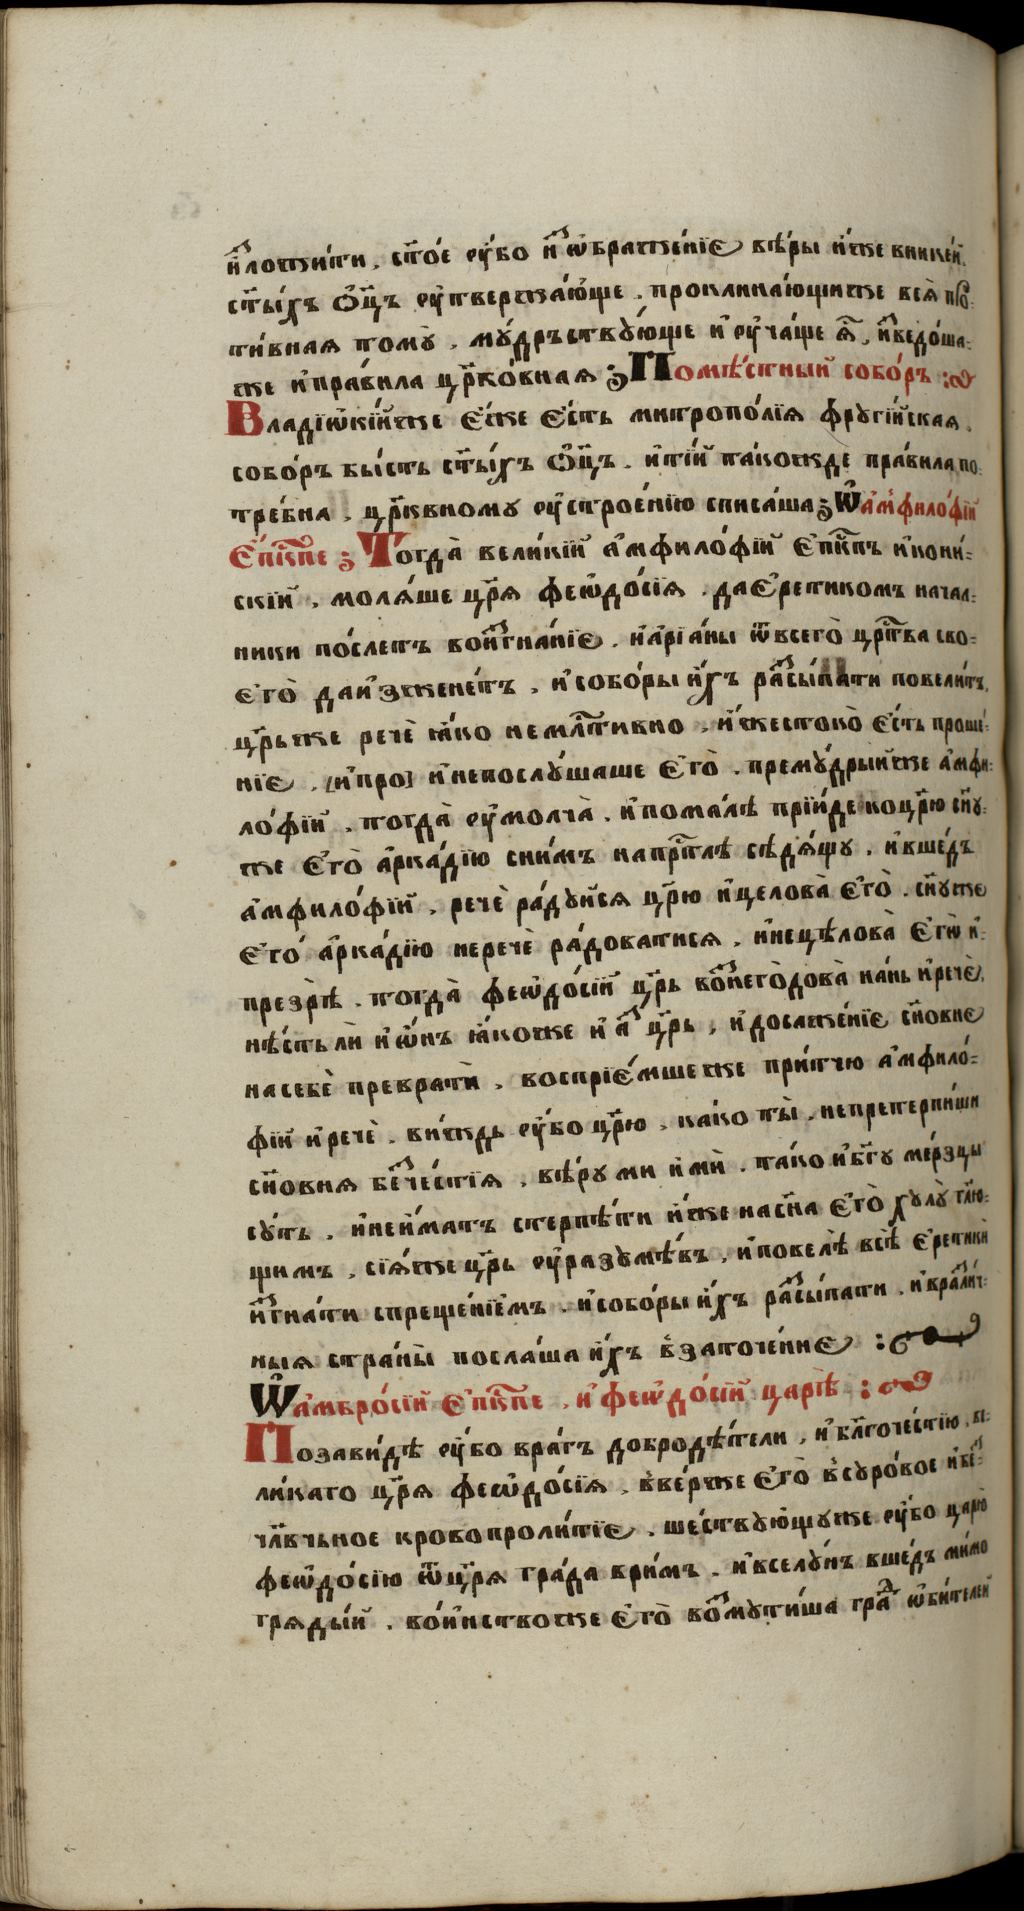 и҆зложи́ти . ст҃о́е ᲂу҆́бо и҆з̾ѡбраже́нїе вѣ́ры и҆́же вникеи́.
ст҃ы́хъ ѻ҆ц҃ъ ᲂу҆твержа́юще . проклина́ющиже всѧ̀ про-
ти́внаѧ томꙋ̀ . мꙋ́дръствꙋюще и҆ ᲂу҆ча́ще ѿ , и҆зведо́ша-
же и҆пра́вила цр҃ко́внаѧ ꙁ Помѣ́стный собо́ръ :
Владїѡкі́йже є҆́же є҆́сть митропо́лїѧ фрꙋгі́йскаѧ .
собо́ръ бы́сть ст҃ы́хъ ѻ҆ц҃ъ . и҆ті́и та́кожде пра́вила по-
тре́бна . цр҃квномꙋ ᲂу҆строе́нїю списа́ша ꙁ Ѡ҆а҆мфило́фїи
є҆пⷭ҇кпе ꙁ Тогда̀ вели́кїй а҆мфило́фїй є҆пⷭ҇кпъ и҆кони́-
скїй . молѧ́ше цр҃ѧ̀ феѡдо́сїѧ . дає҆ретикомъ начал-
ники по́слетъ воизгна́нїе . и҆а҆рїа́ны ѿ всего̀ црⷭ҇тва сво-
є҆гѡ̀ даи҆зжене́тъ . и҆собо́ры и҆́хъ разсы́пати повели́тъ,
цр҃ьже речѐ ꙗ҆́ко немлⷭ҇тивно , и҆же́стоко є҆́сть проше́-
нїе . [и҆про] и҆непослꙋ́шаше є҆го̀ . премꙋ́дрыйже а҆мфи-
ло́фїй . тогда̀ ᲂу҆молча̀ . и҆пома́лѣ прїи́де коцр҃ю сн҃ꙋ-
же є҆го̀ а҆рка́дїю сни́мъ напрⷭ҇тлѣ сѣдѧ́щꙋ . и҆вше́дъ
а҆мфило́фїй . речѐ ра́дꙋйсѧ цр҃ю и҆целова̀ є҆го̀ . сн҃ꙋже
є҆го̀ а҆рка́дїю неречѐ ра́доватисѧ . и҆нецѣлова̀ є҆гѡ̀ и҆-
презрѣ̀ . тогда̀ феѡдо́сїй цр҃ь возⸯнегодова̀ на́нь и҆речѐ,
нѣ́сть ли и҆ѻ́нъ ꙗ҆́коже и҆ а҆́зъ цр҃ь , и҆досаже́нїе сн҃овне
насебѐ превратѝ . воспрїе́мшеже при́тчю а҆мфило́-
фїй и҆речѐ . ви́ждь ᲂу҆́бо цр҃ю . ка́ко ты̀ . непретерпи́ши
сн҃овнѧ безче́стїѧ , вѣ́рꙋ ми и҆мѝ . та́ко и҆бг҃ꙋ ме́рзцы
сꙋ́ть . и҆неи́мать стерпѣ́ти и҆́же насн҃а є҆гѡ̀ хꙋлꙋ̀ гл҃ю-
щимъ . сїѧ́же цр҃ь ᲂу҆разꙋмѣ́въ , и҆повелѣ̀ всѣ̀ є҆ретикѝ
и҆згна́ти спреще́нїемъ . и҆собо́ры и҆́хъ разсы́пати . и҆вразли́ч-
ныѧ страны̀ посла́ша и҆́хъ в̾заточе́нїе :
Ѡ҆а҆мбро́сїи є҆пⷭ҇кпе . и҆ феѡдо́сїи царѣ̀ :
Позави́дѣ ᲂу҆́бо врагъ добродѣ́тели , и҆бл҃гоче́стїю , ве-
ли́каго цр҃ѧ̀ феѡдо́сїѧ . в̾ве́рже є҆го̀ в̾сꙋро́вое и҆без-
чл҃вчьное кровопроли́тїе . ше́ствꙋющꙋже ᲂу҆́бо царю̀
феѡдо́сїю ѿцр҃ѧ гра́да вримъ . и҆вселꙋ́нъ вше́дъ мимо
грѧды́й . во́инствоже є҆го̀ возⸯмꙋти́ша гра́дъ ѻ҆би́телей